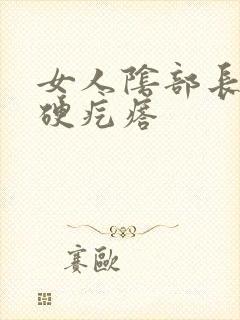 女人陰部長
硬疙瘩
賽歐